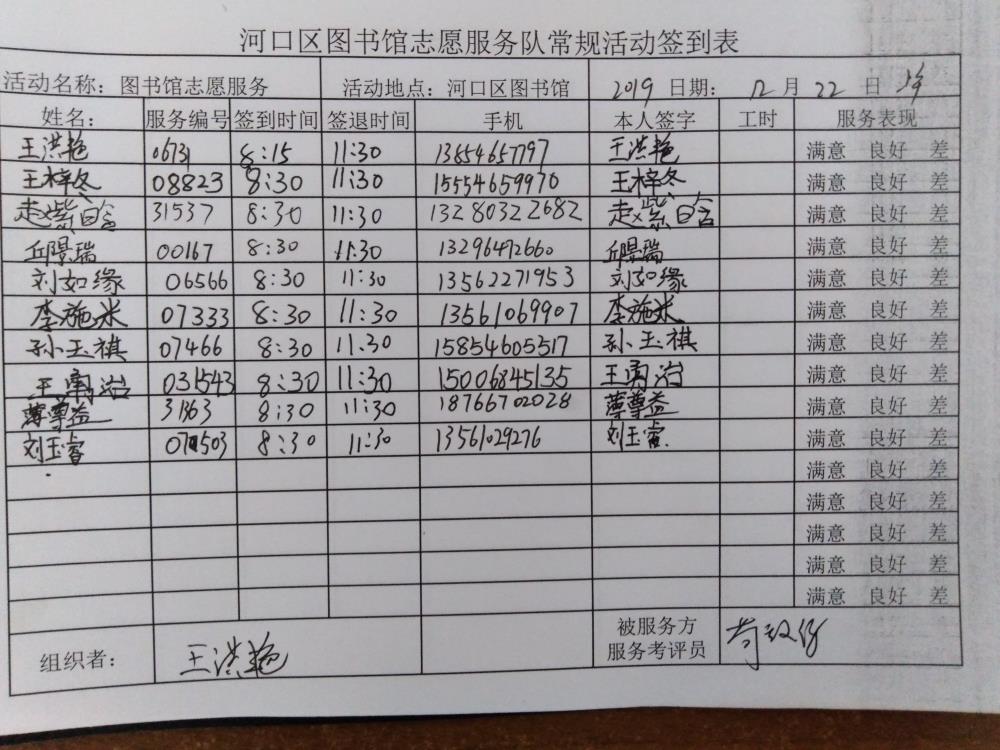 河口区图书馆志愿服务队常规活动签到表
活动名称：图书馆志愿服务 活动地点：河口区图书馆 2019 日期： 12 月 22 日
姓名： 服务编号 签到时间 签退时间 手机 本人签字 工时 服务表现
王洪艳 06731 8:15 11:30 13854657797 王洪艳 满意 良好 差
王梓冬 08823 8:30 11:30 15554659970 王梓冬 满意 良好 差
赵紫晗 31537 8:30 11:30 13280322682 赵紫晗 满意 良好 差
邱景瑞 00167 8:30 11:30 13296472660 邱景瑞 满意 良好 差
刘如缘 06566 8:30 11:30 13562271953 刘如缘 满意 良好 差
李施米 07333 8:30 11:30 13561069907 李施米 满意 良好 差
孙玉祺 07466 8:30 11.30 15854605517 孙玉祺 满意 良好 差
王勇治 031543 8:30 11:30 15006845135 王勇治 满意 良好 差
薄尊益 31363 8:30 11:30 18766702028 薄尊益 满意 良好 差
刘玉睿 8:30 11:30 13561029276 刘玉睿 满意 良好 差
满意 良好 差
满意 良好 差
满意 良好 差
满意 良好 差
满意 良好 差
组织者： 王洪艳 被服务方
服务考评员